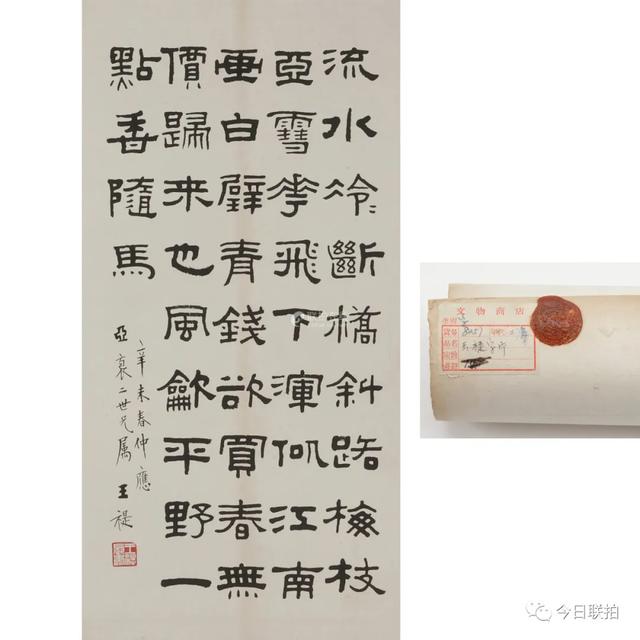 流水泠〻斷橋斜路梅枝
亞雪華飛下渾佀江南
畫白璧青錢欲買春無
價歸来也風龡平野一
點香隨馬
辛未春仲應
亞 二世兄属 王禔
文物商店
今日联拍